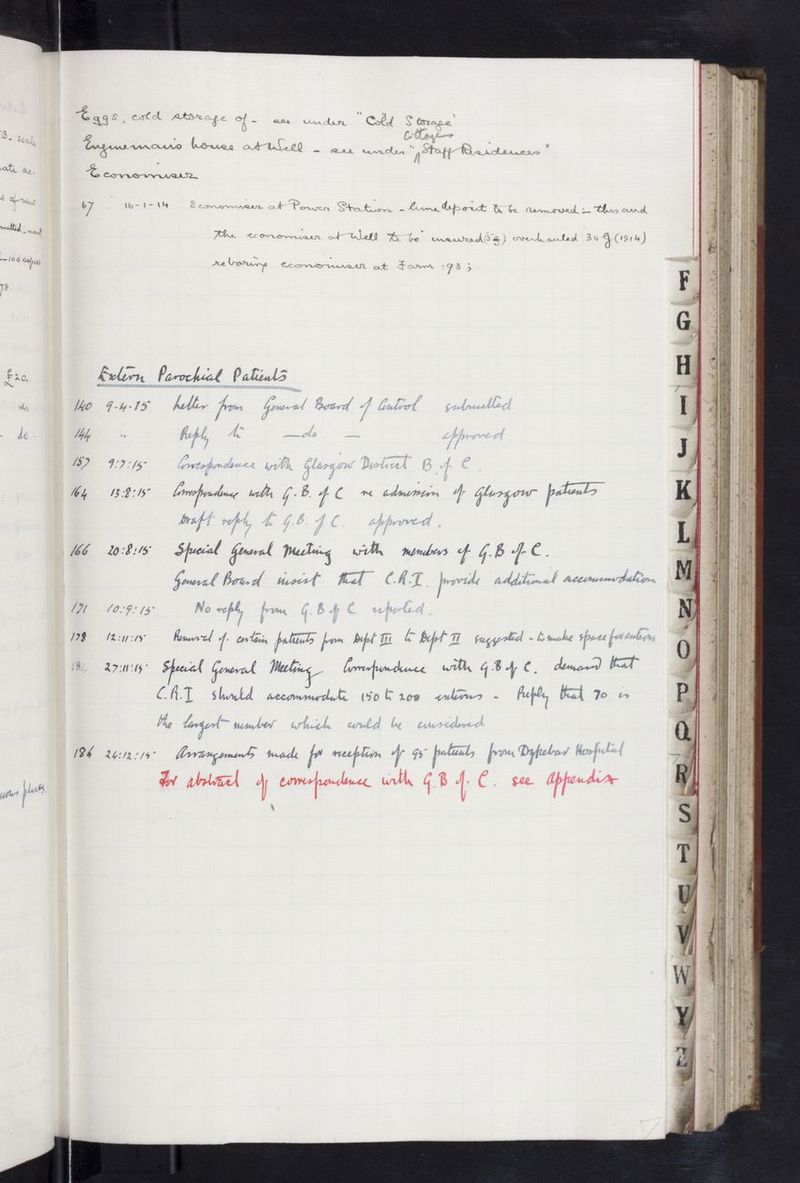 Eggs, cold storage of - see under "Cold Storage"
Cottages
Enginemains house at Well - see under " Staff Residences"
Economiser
67 16-1-14 Economiser at Power Station - lime deposit to be removed - this and
the economiser at Well to be insured (59) overhauled 309 (1914)
reboring economiser at Farm :93 ;
Extern Parochial Patients
140 9.4.15 Letter from General Board of Control submitted
144 " Reply to —do— approved
157 9:7:15 Correspondence with Glasgow District B. of C.
164 13:8:15 Correspondence with G.B. of C re admission of Glasgow patients
Draft reply to G.B. of C. approved.
166 20:8:15 Special General Meeting with members of G.B of C.
General Board insist that C.R.I. provide additional accommodation
171 10:9:15 No reply from G.B of C reported.
178 12:11:15 Removal of certain patients from Dept III to Dept II suggested - to make space for externs
181 27:11:15 Special General Meeting Correspondence with G.B of C. demand that
C.R.I should accommodate 150 to 200 externs - Reply that 70 is
the largest number which could be considered
186 24:12:15 Arrangements made for reception of 95 patients from Dykebar Hospital
For abstract of correspondence with G.B of C. see Appendix
F
G
H
I
J
K
L
M
N
O
P
Q
R
S
T
U
V
W
Y
Z
£20.
do
do -